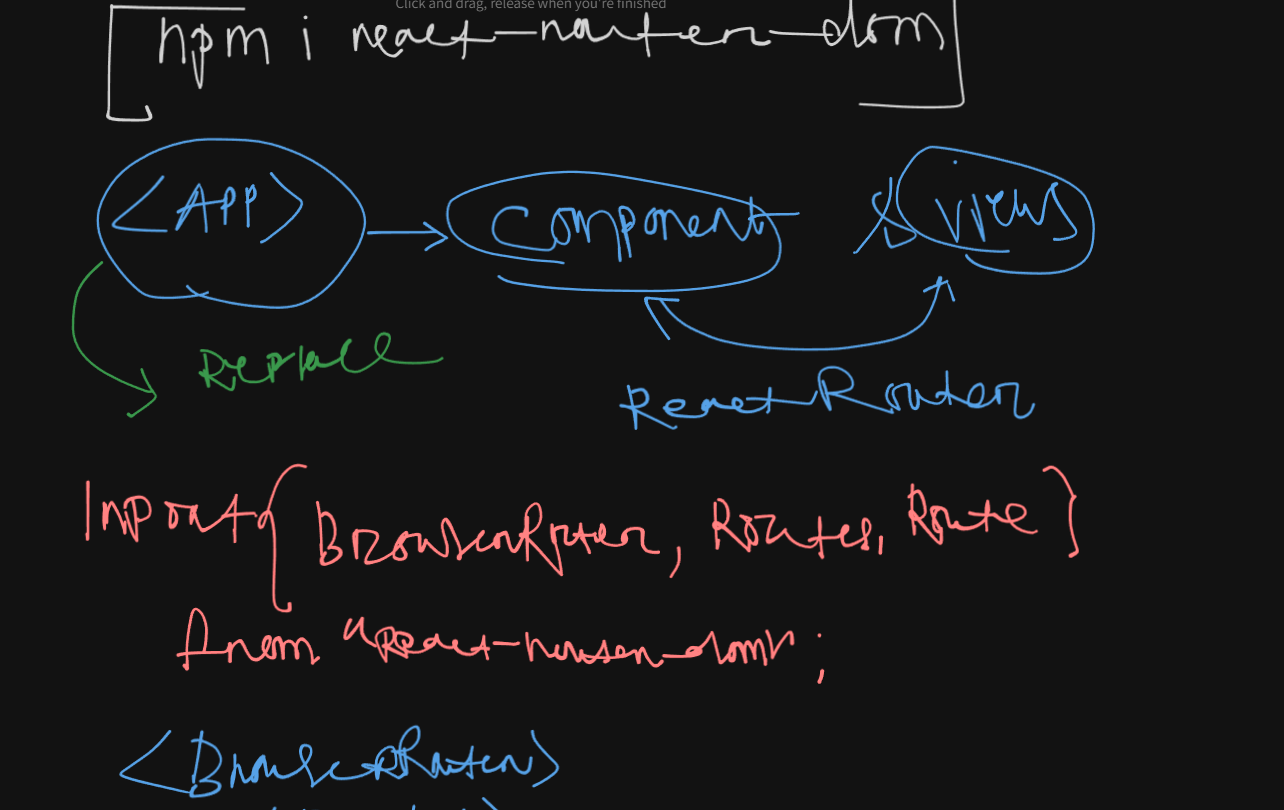 Click and drag, release when you're finished
npm i react-router-dom
<APP> → Component & Views
Replace
React Router
Import { BrowserRouter, Routes, Route }
from "React-router-dom";
<BrowserRouter>